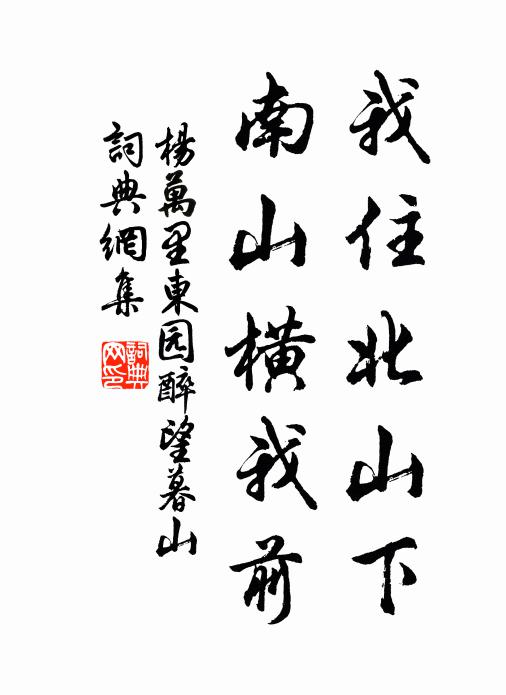 我住北山下
南山橫我前
楊萬里東园醉望暮山
詞典網集
詞典網印